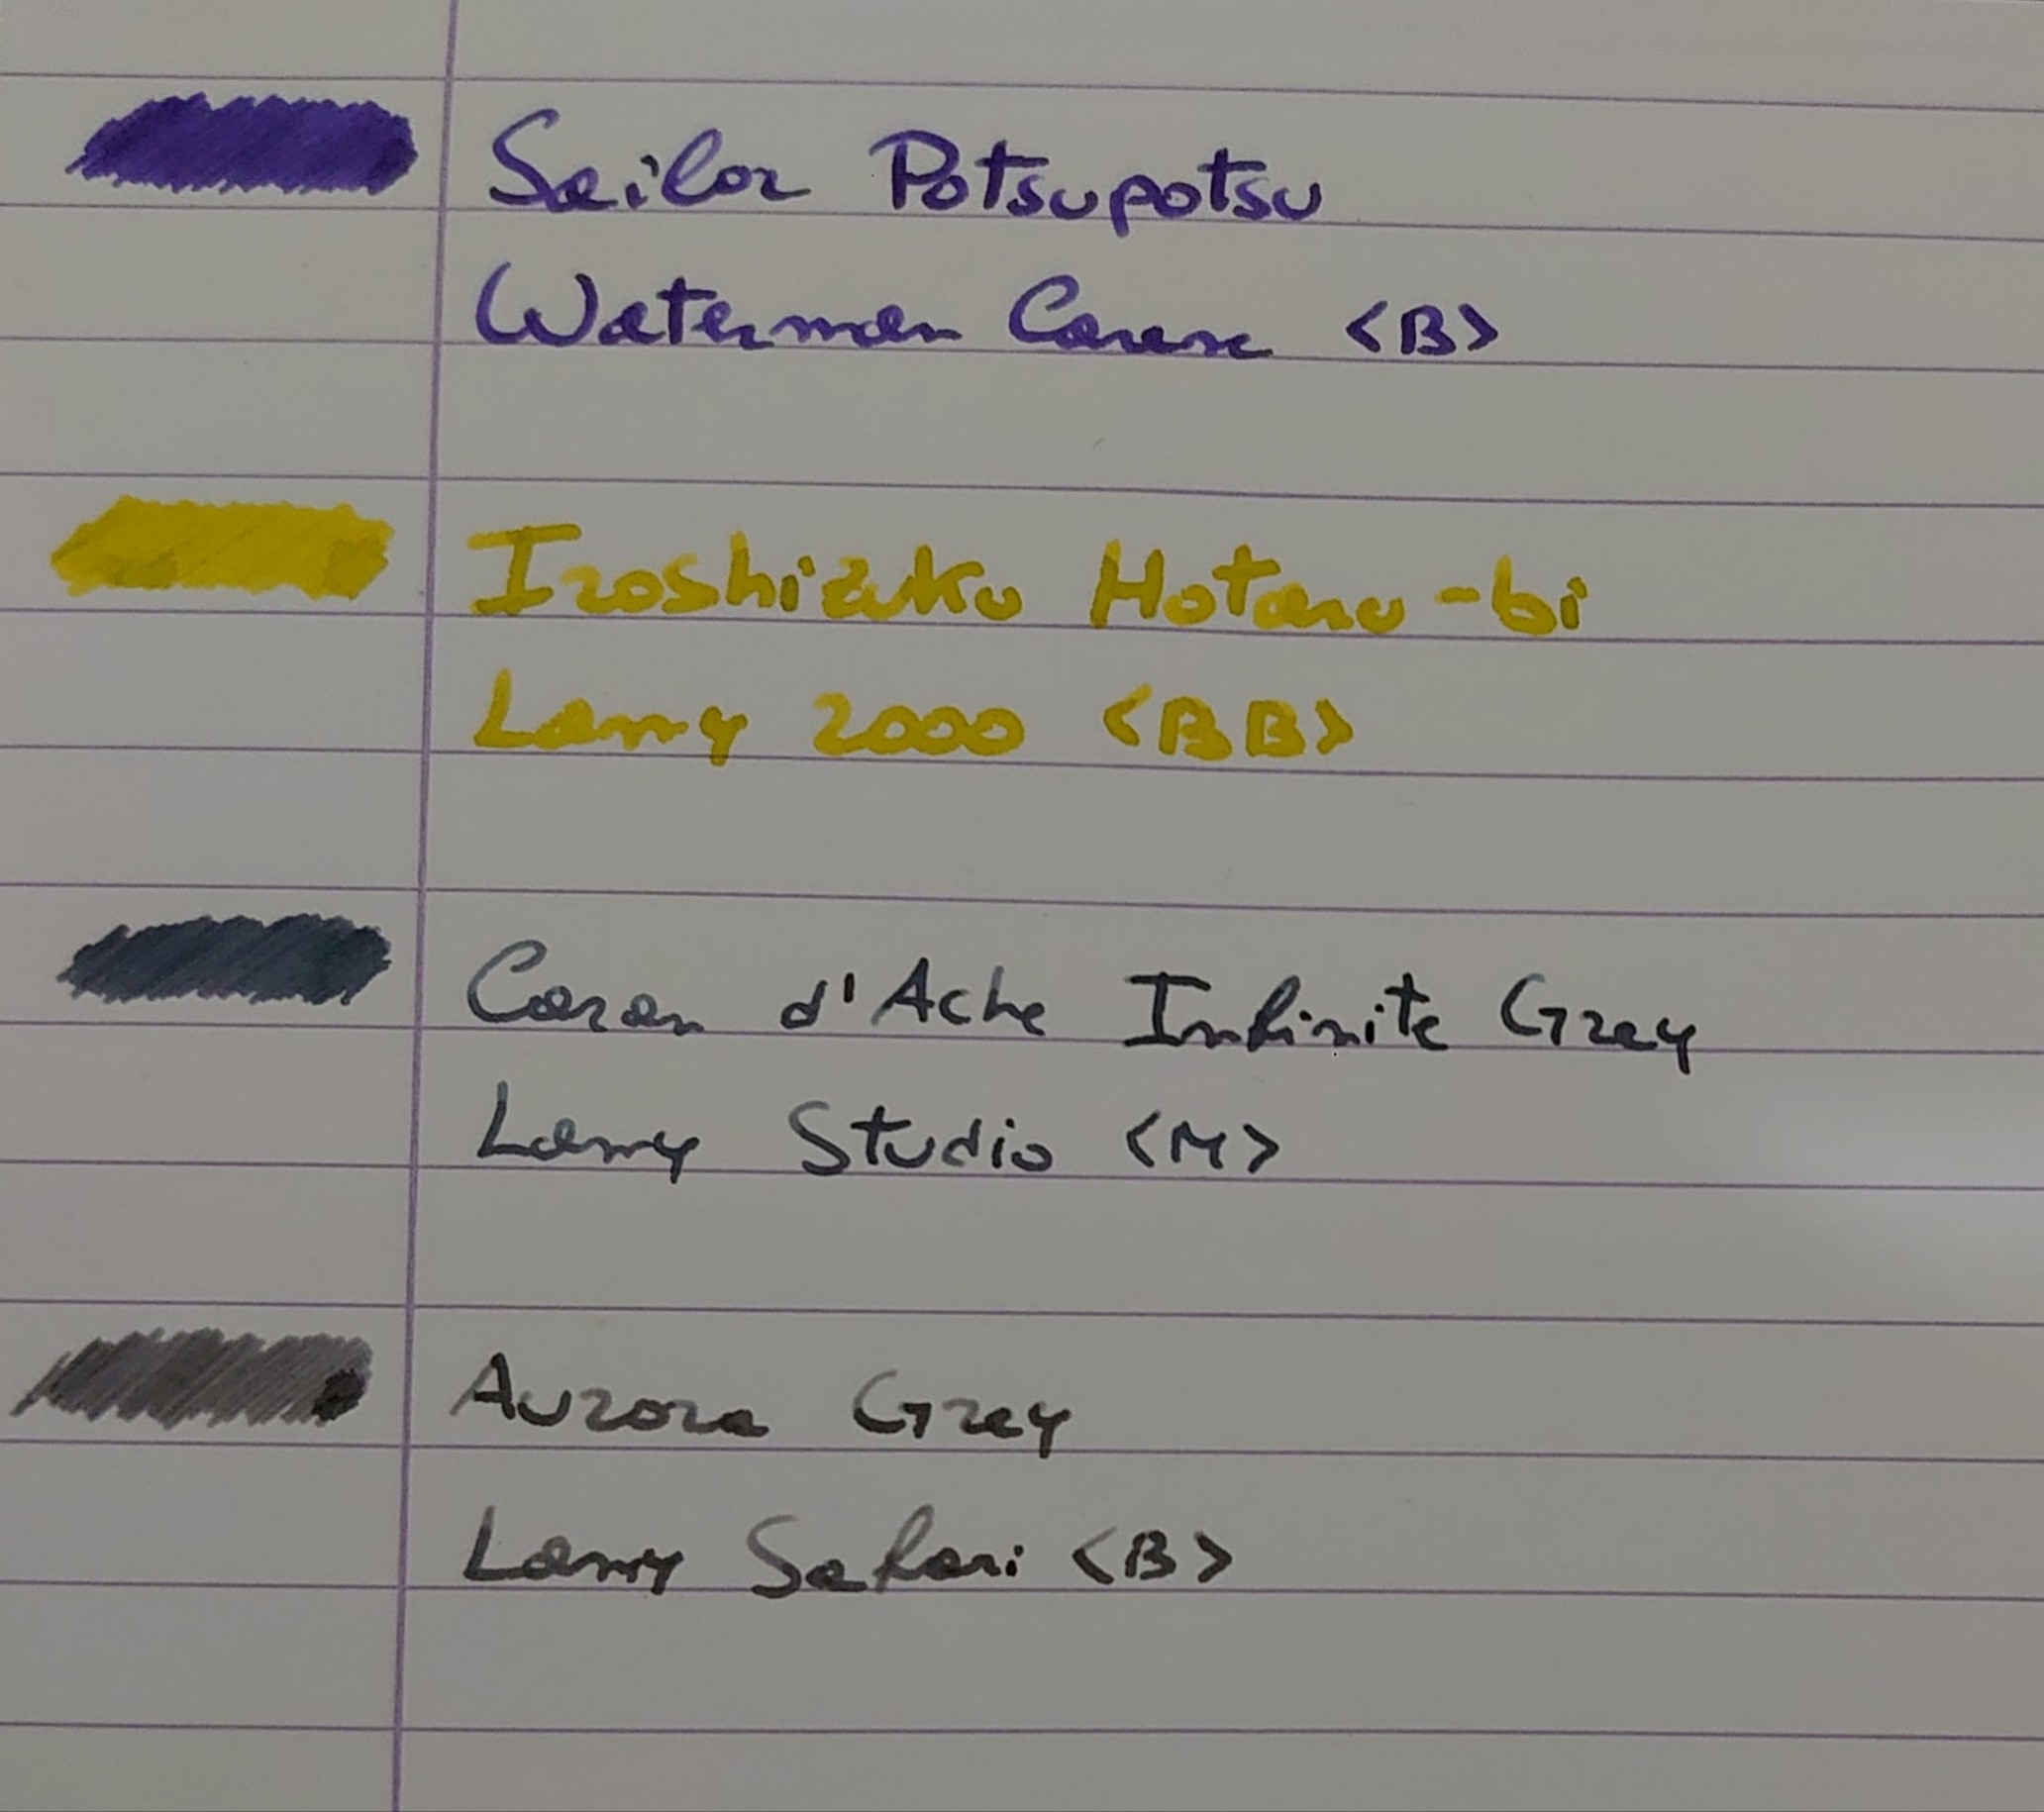 Sailor Potsupotsu
Waterman Carene <B>
Iroshizuku Hotaru-bi
Lamy 2000 <BB>
Caran d'Ache Infinite Grey
Lamy Studio <M>
Aurora Grey
Lamy Safari <B>